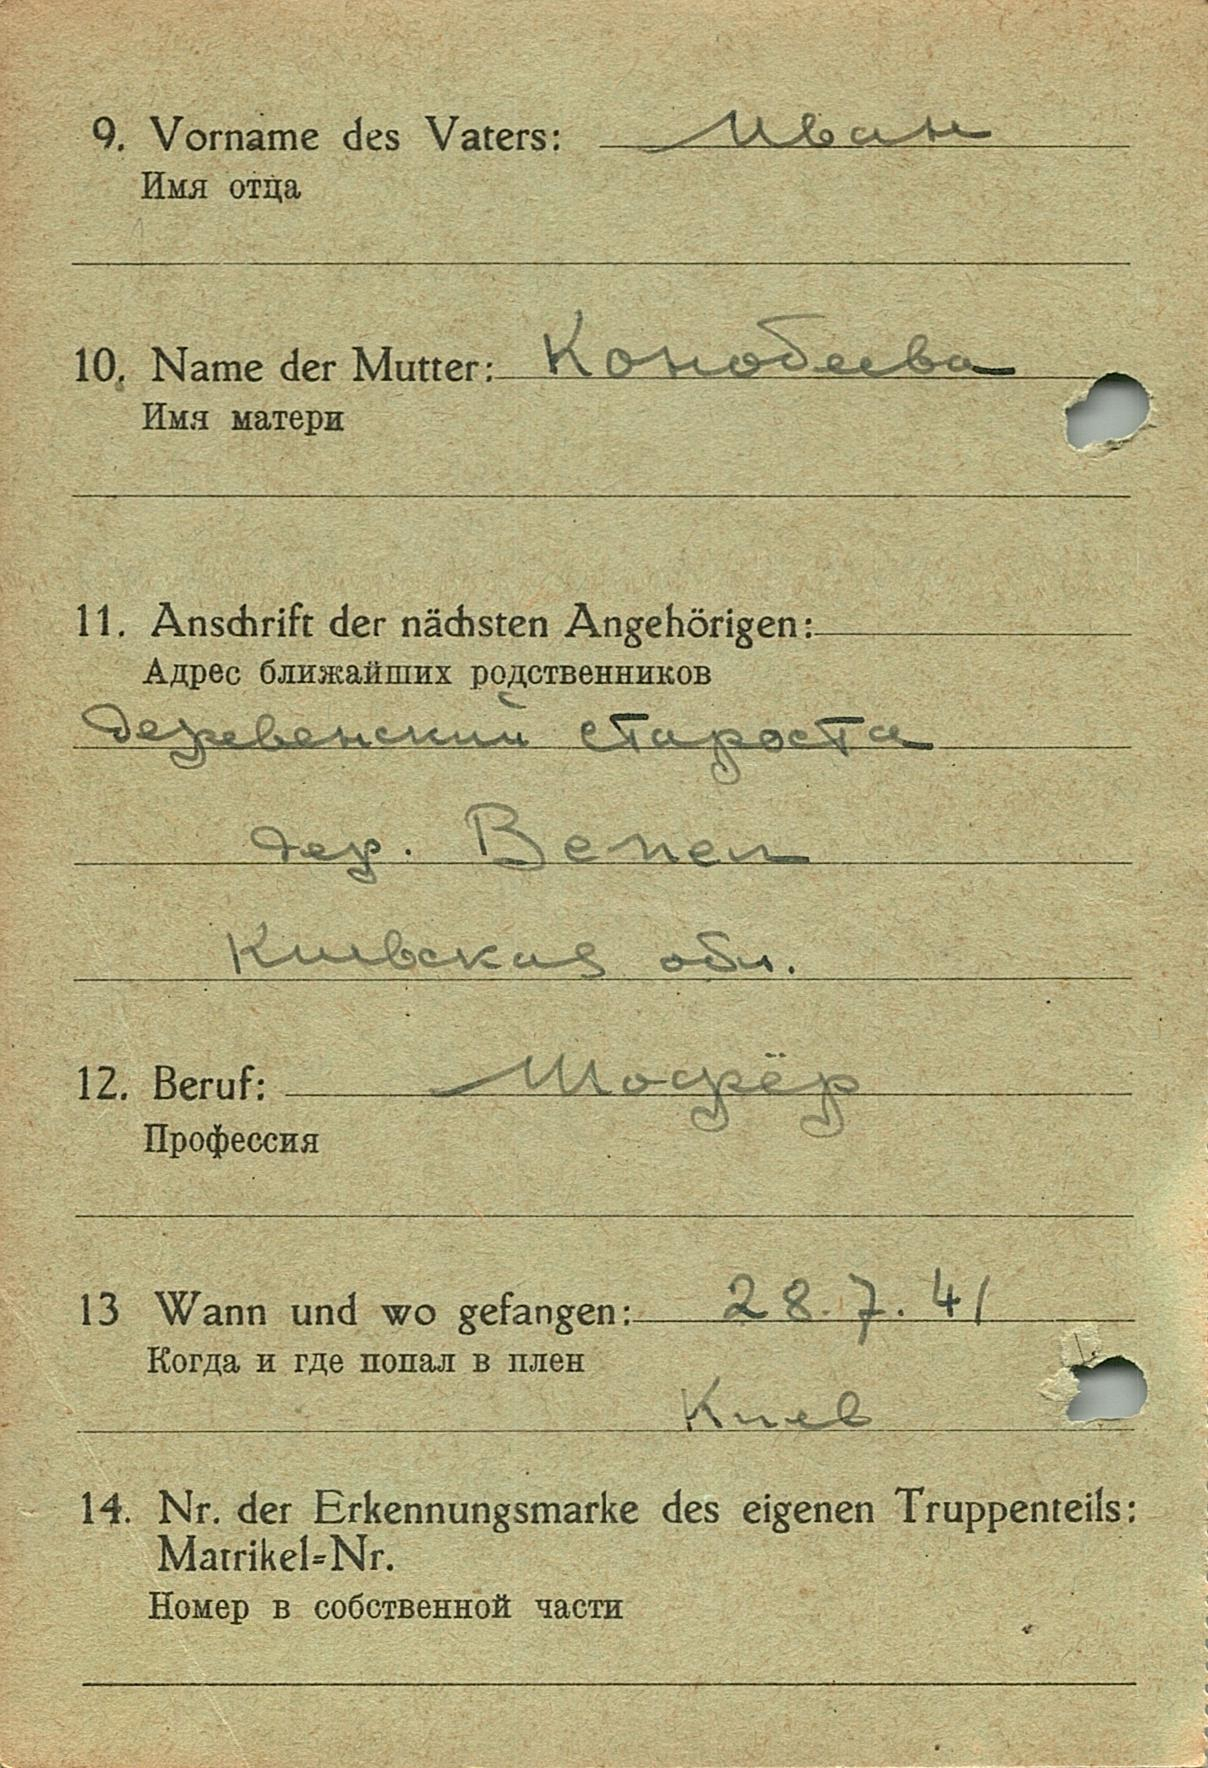 9. Vorname des Vaters: Иван
Имя отца
10. Name der Mutter: Конобеева
Имя матери
11. Anschrift der nächsten Angehörigen:
Адрес ближайших родственников
деревенский староста
дер.
Киевская обл.
12. Beruf: Шофёр
Профессия
13 Wann und wo gefangen: 28.7.41
Когда и где попал в плен
Киев
14. Nr. der Erkennungsmarke des eigenen Truppenteils:
Matrikel=Nr.
Номер в собственной части